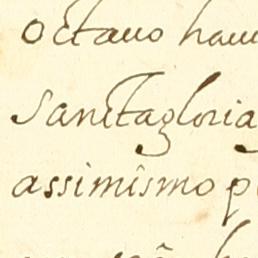 octauo hau
Sanctagloria
assimismo p